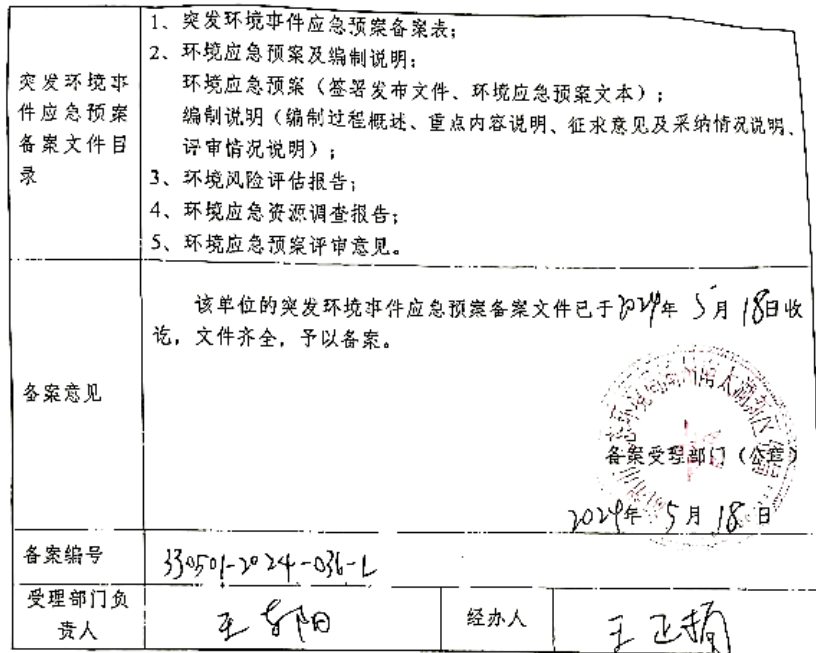 突发环境事件应急预案备案文件目录
1、突发环境事件应急预案备案表;
2、环境应急预案及编制说明;
环境应急预案(签署发布文件、环境应急预案文本);
编制说明(编制过程概述、重点内容说明、征求意见及采纳情况说明、
评审情况说明);
3、环境风险评估报告;
4、环境应急资源调查报告;
5、环境应急预案评审意见。
备案意见
该单位的突发环境事件应急预案备案文件已于2024年 5月 18日收
讫,文件齐全,予以备案。
备案受理部门(公章)
2024年 5月 18日
备案编号
330501-2024-036-L
受理部门负
责人
王
经办人
王正